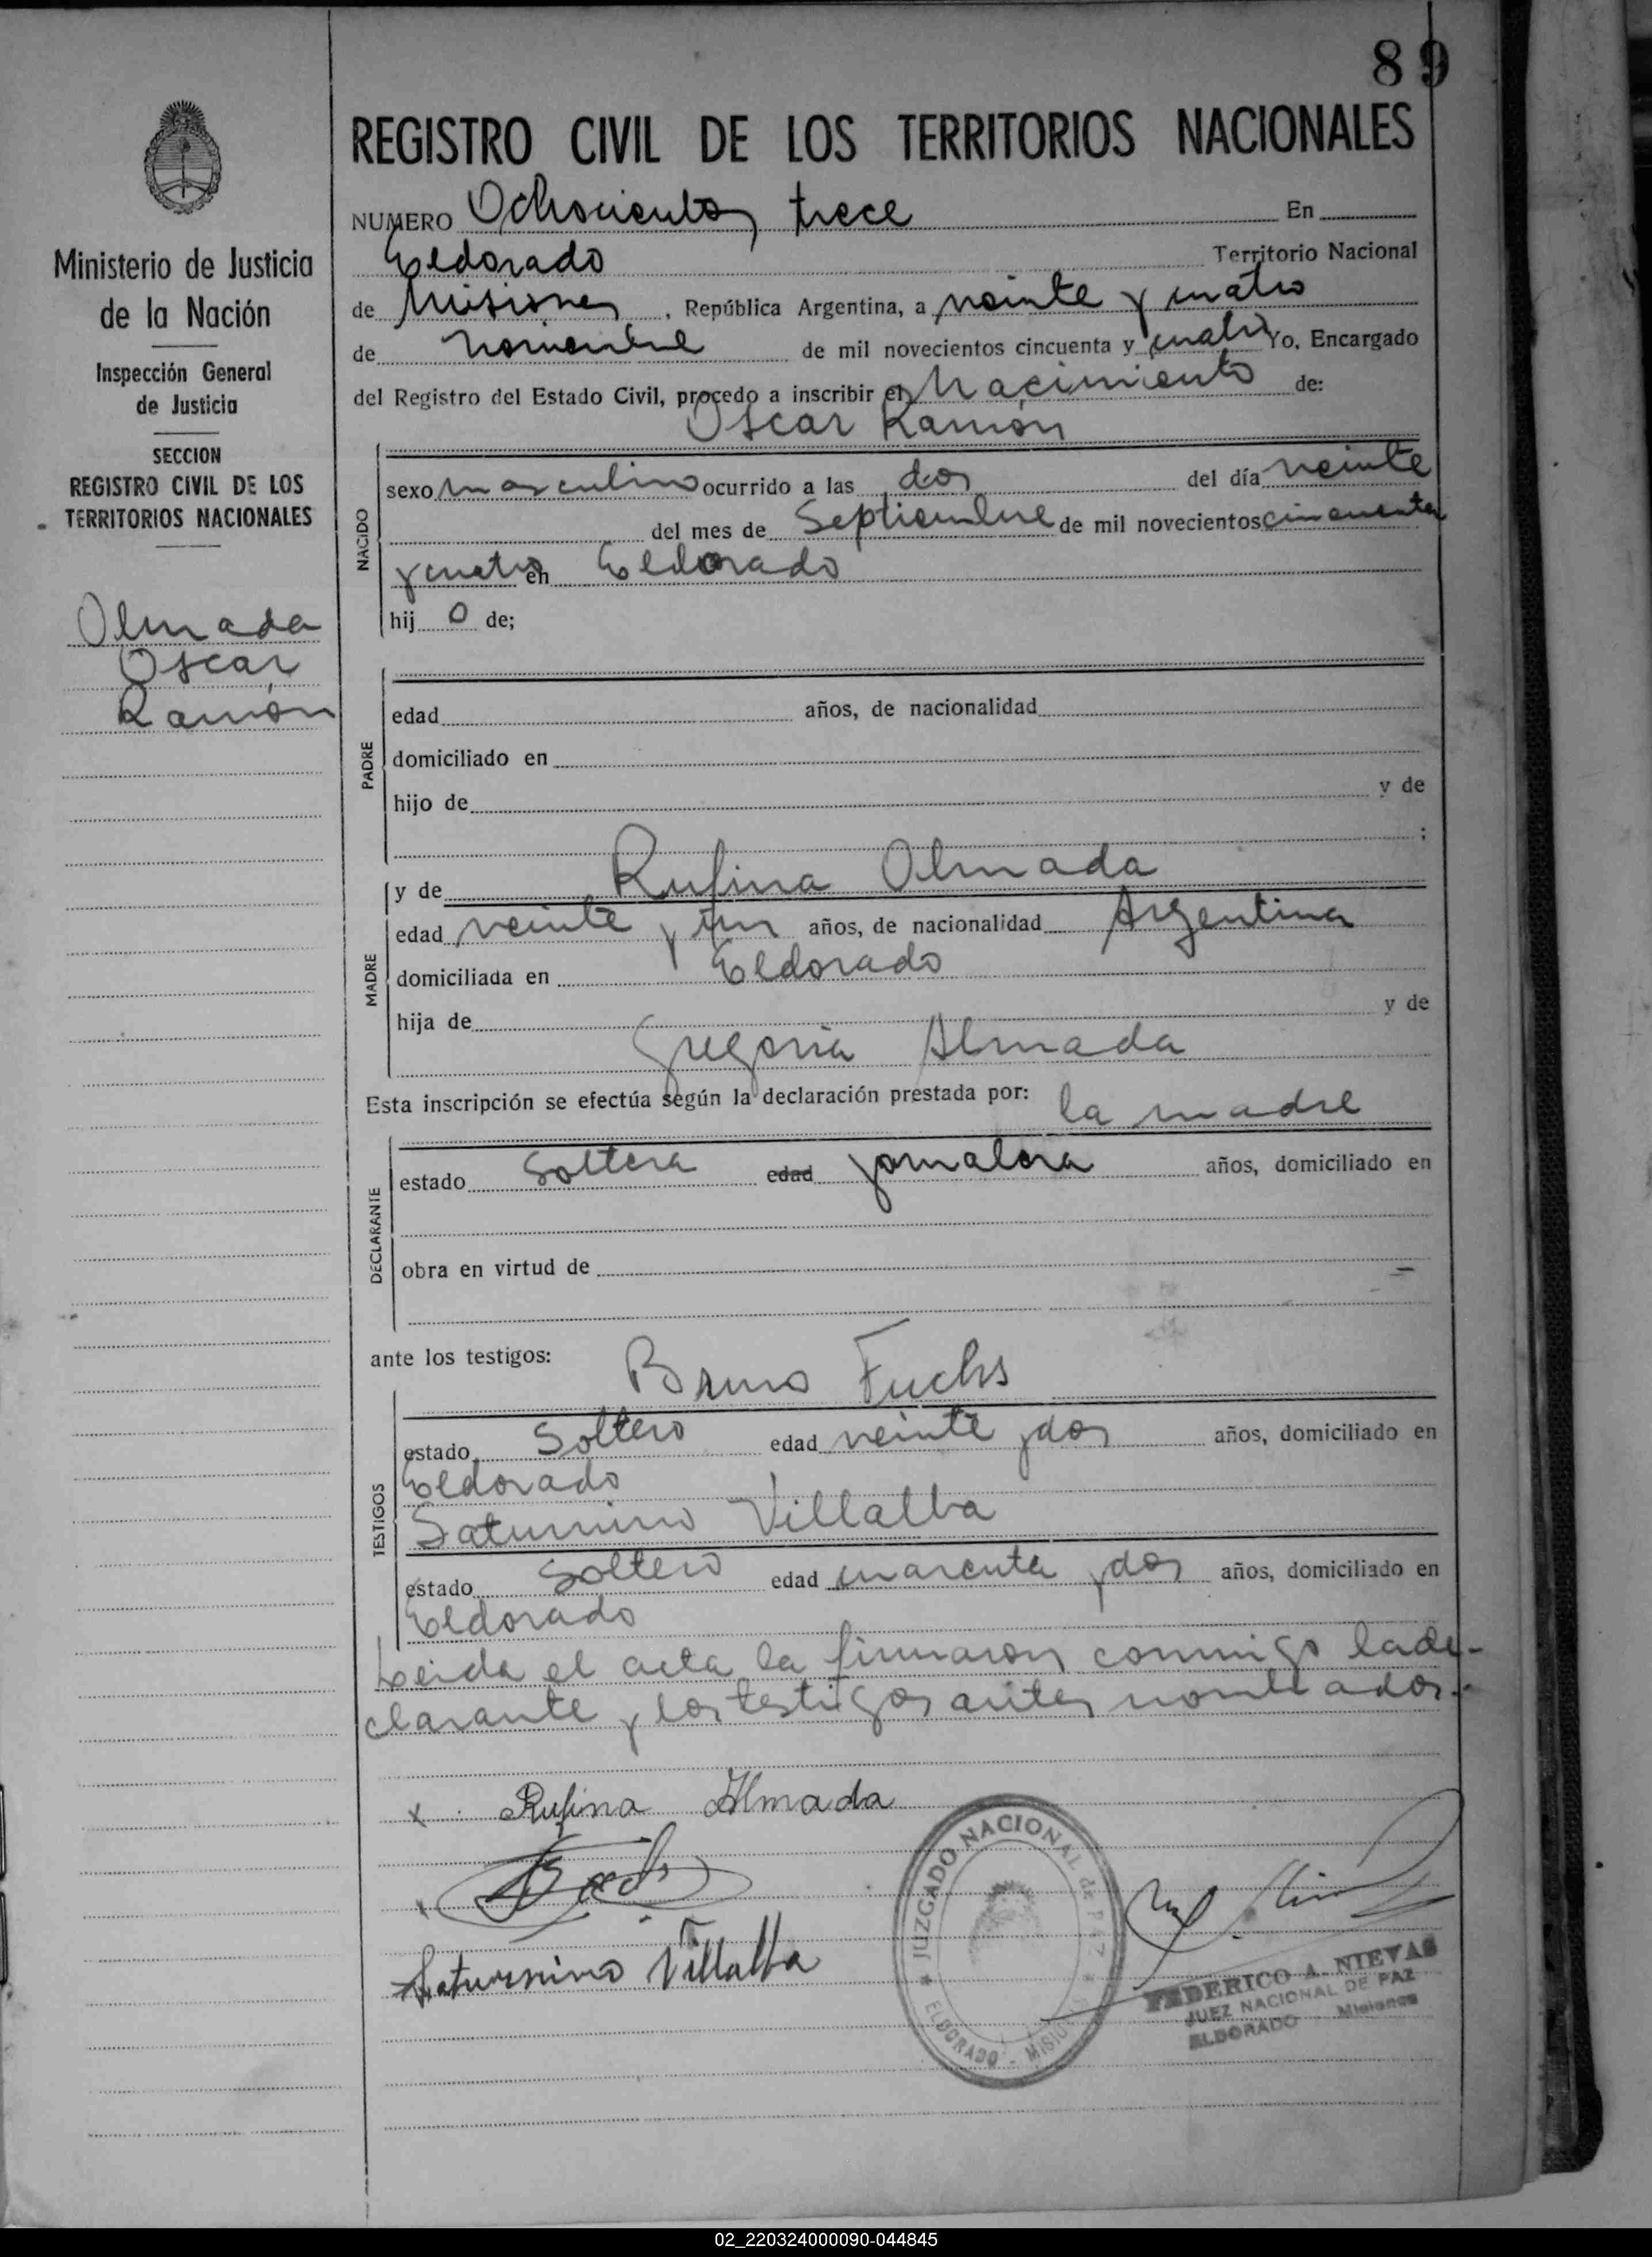 89
REGISTRO CIVIL DE LOS TERRITORIOS NACIONALES
Ministerio de Justicia
de la Nación
Inspección General
de Justicia
SECCION
REGISTRO CIVIL DE LOS
TERRITORIOS NACIONALES
Olmada
Oscar
Ramón
NUMERO Ochocientos trece En
Eldorado Territorio Nacional
de Misiones, República Argentina, a veinte y cuatro
de noviembre de mil novecientos cincuenta y cuatro Yo, Encargado
del Registro del Estado Civil, procedo a inscribir el Nacimiento de:
Oscar Ramón
NACIDO
sexo masculino ocurrido a las dos del día veinte
del mes de Septiembre de mil novecientos cincuenta
y cuatro en Eldorado
hijo de;
PADRE
edad años, de nacionalidad
domiciliado en
hijo de y de
;
MADRE
y de Rufina Olmada
edad veinte y un años, de nacionalidad Argentina
domiciliada en Eldorado
hija de y de
Gregoria Almada
Esta inscripción se efectúa según la declaración prestada por: la madre
DECLARANTE
estado Soltera edad jornalera años, domiciliado en
obra en virtud de
ante los testigos: Bruno Fuchs
TESTIGOS
estado Soltero edad veinte y dos años, domiciliado en
Eldorado
Saturnino Villalba
estado Soltero edad cuarenta y dos años, domiciliado en
Eldorado
Leida el acta la firmaron conmigo la de-
clarante y los testigos antes nombrados.-
x Rufina Almada
Saturnino Villalba
JUZGADO NACIONAL de PAZ
ELDORADO - MISIONES
FEDERICO A. NIEVAS
JUEZ NACIONAL DE PAZ
ELDORADO Misiones
02_220324000090-044845